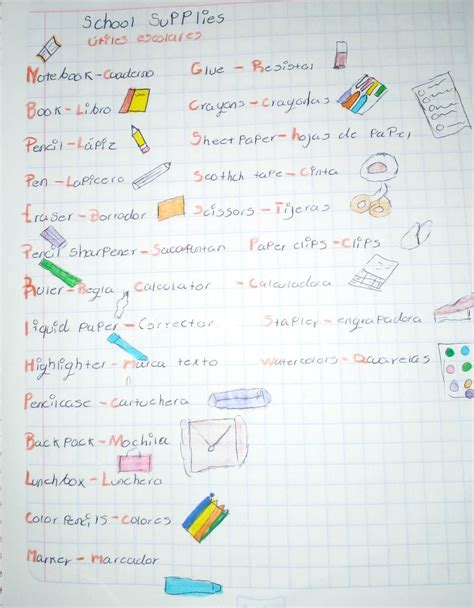 School Supplies
Útiles escolares
Notebook - Cuaderno
Book - Libro
Pencil - Lápiz
Pen - Lapicero
Eraser - Borrador
Pencil sharpener - Sacapuntan
Ruler - Regla
Liquid paper - Corrector
Highlighter - Marca texto
Pencilcase - Cartuchera
Back pack - Mochila
Lunchbox - Lunchera
Color pencils - Colores
Marner - Marcador
Glue - Resistol
Crayons - Crayodas
Sheet paper - hojas de papel
Scothch tape - Cinta
Scissors - Tijeras
Paper clips - Clips
Calculator - Calculadora
Stapler - engrapadora
Watercolors - Quarelas